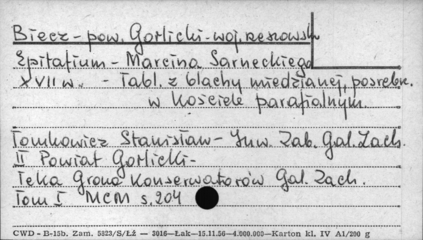 Biecz - pow. Gorlicki - woj. rzeszowskie
Epitafium - Marcina Sarneckiego
XVII w. - Tabl. z blachy miedzianej, posrebrz.
w Kościele parafialnym.
Tomkowicz Stanisław - Inw. Zab. Gal. Zach.
II Powiat Gorlicki -
Teka Grona Konserwatorów Gal. Zach.
Tom I MCM s. 204
CWD - B-15b. Zam. 5823/S/ŁŻ — 3016—Łak—15.11.56—4.000.000—Karton kl. IV A1/200 g